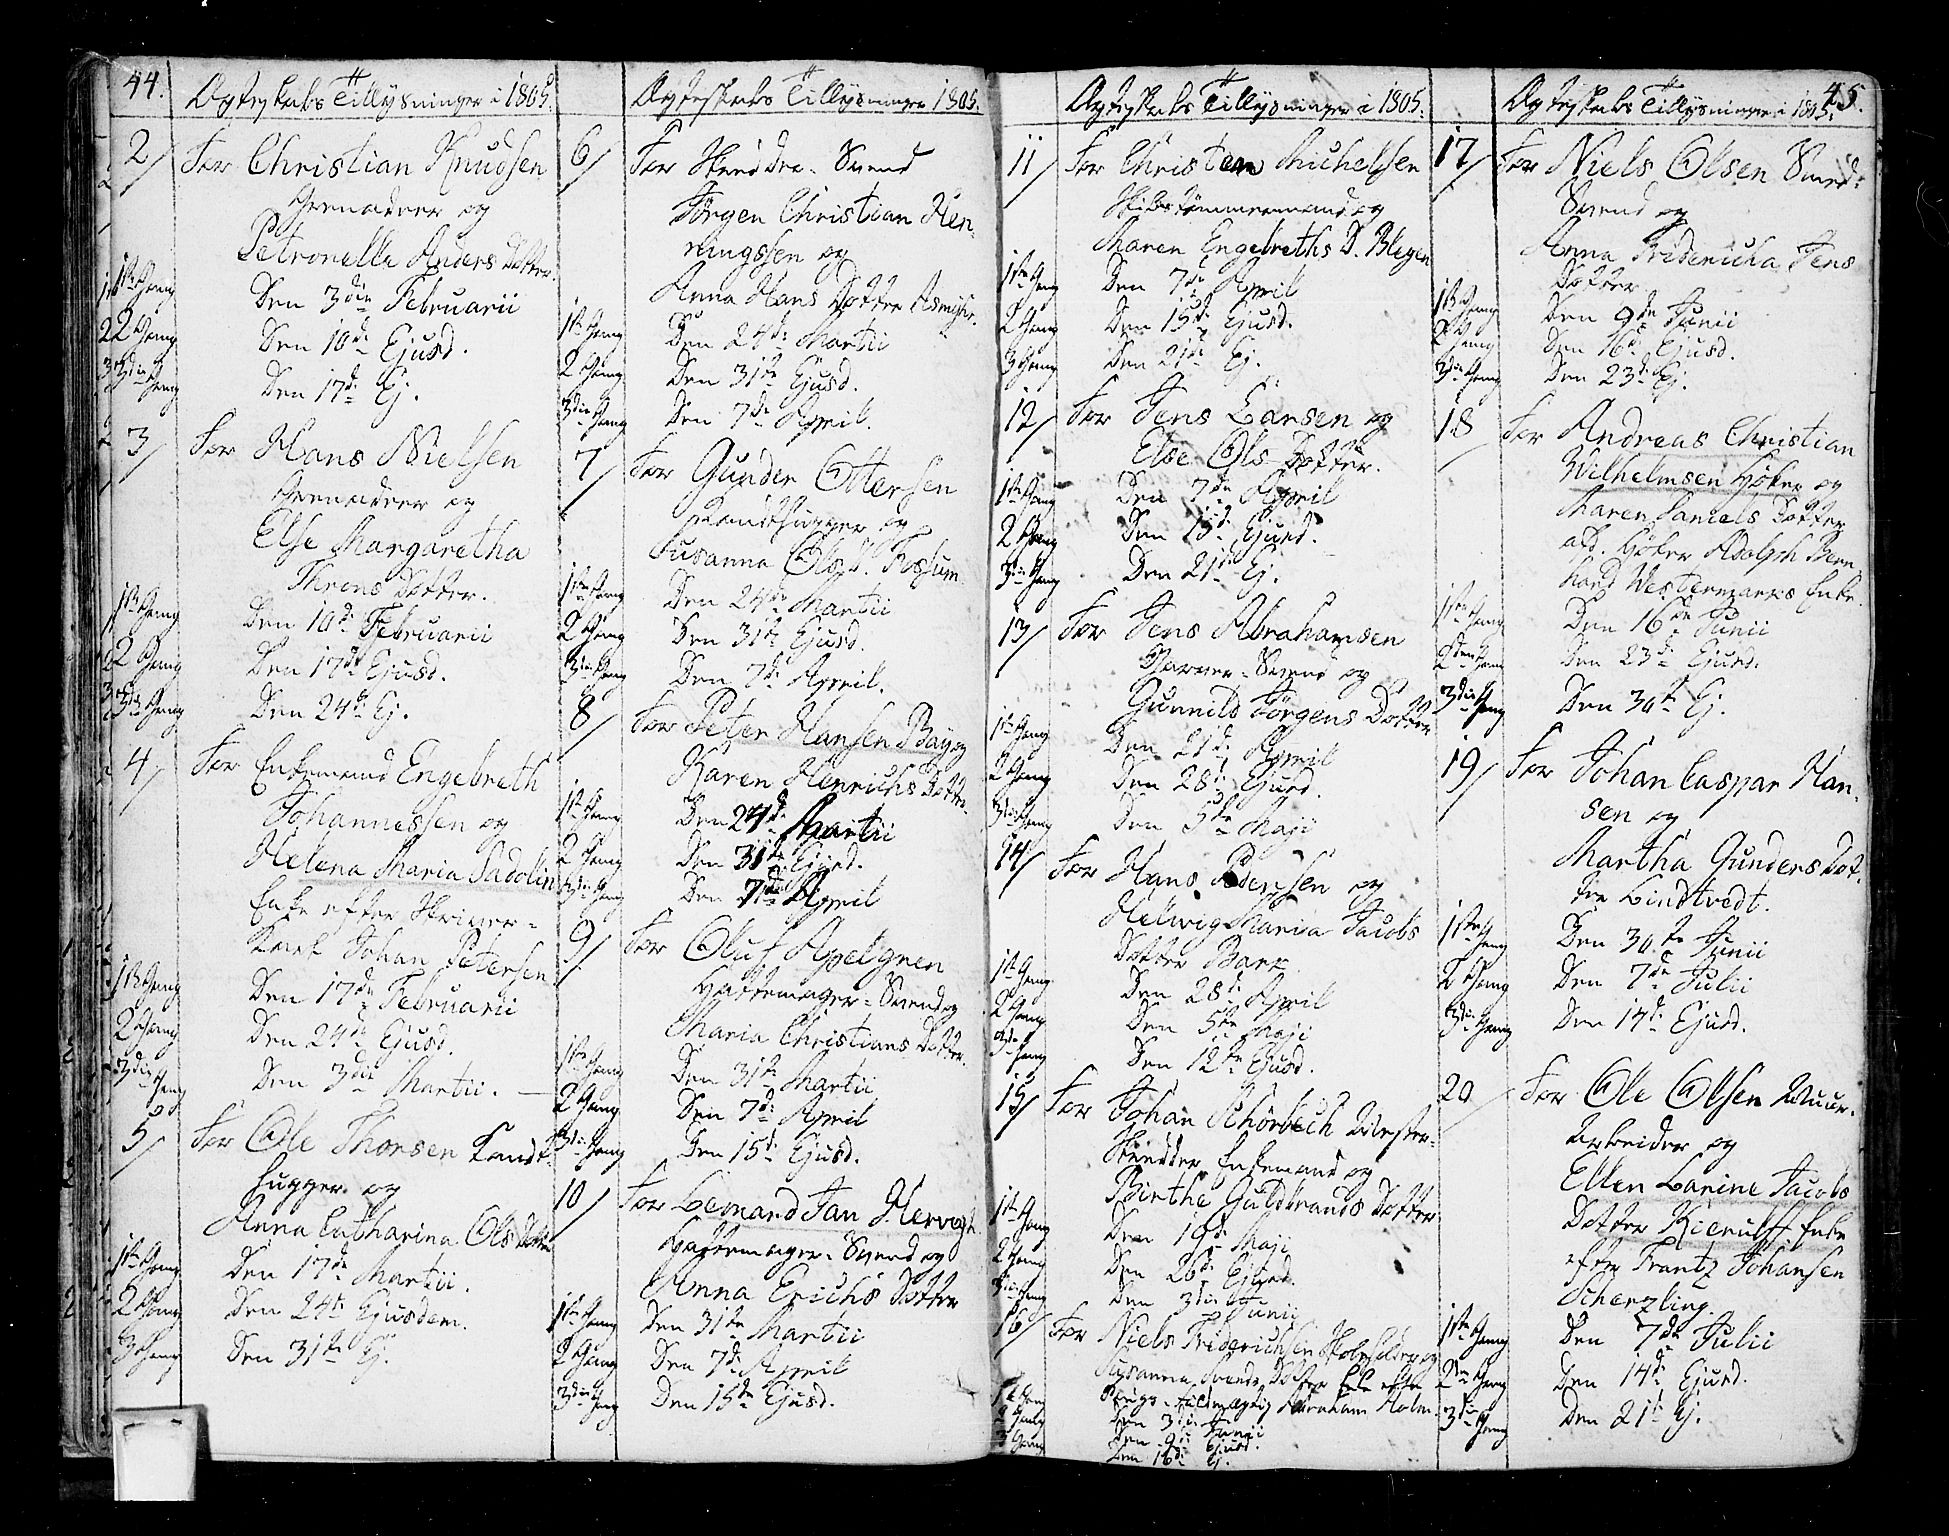 44.
Ægteskabs Tillysninger i 1805.
2/ For Christian Knudsen
Grenadeer og
Petronelle Anders Dotter.
1ste Gang Den 3die Februarii
2 Gang Den 10de Ejusd.
3die Gang Den 17de Ej.
3/ For Hans Nielsen
Grenadeer og
Else Margaretha
Throns Dotter.
1ste Gang Den 10de Februarii
2 Gang Den 17de Ejusd.
3die Gang Den 24de Ej.
4/ For Enkemand Engebreth
Johannessen og
Helena Maria Sadolin
Enke efter Skriver-
Karl Johan Petersen
1ste Gang Den 17de Februarii
2 Gang Den 24de Ejusd.
3die Gang Den 3die Martii.
5/ For Ole Thorsen Kandt-
hugger og
Anna Catharina Ols Dotter
1ste Gang Den 17de Martii.
2 Gang Den 24de Ejusdem.
3 Gang Den 31te Ej.
Ægteskabs Tillysninger 1805.
6/ For Skrædder-Svend
Jörgen Christian Hen-
ningssen og
Anna Hans Dotter Asmyhr.
1ste Gang Den 24de Martii
2 Gang Den 31te Ejusd.
3die Gang Den 7de April.
7/ For Gunder Ottersen
Kandthugger og
Susanna Ols D. Fossum
1ste Gang Den 24de Martii
2 Gang Den 31te Ejusd.
3die Gang Den 7de April.
8/ For Peter Hansen Bay og
Karen Henrichs Dotter
1ste Gang Den 24de Martii
2 Gang Den 31te Ejusd.
3die Gang Den 7de April
9/ For Oluf Apelgren
Hattemager-Svend og
Maria Christians Dotter.
1ste Gang Den 31te Martii
2 Gang Den 7de April
3die Gang Den 15de Ejusd.
10/ For Leonard Jan Hervegh
Hattemager-Svend og
Anna Erichs Dotter
1ste Gang Den 31te Martii
2 Gang Den 7de April
3die Gang Den 15de Ejusd.
Ægteskabs Tillysninger i 1805.
11/ For Christen Michelsen
Skibstømmermand og
Maren Engebreths D. Blegen
1ste Gang Den 7de April
2 Gang Den 15de Ejusd.
3 Gang Den 21de Ej.
12/ For Jens Larsen og
Else Ols Dotter.
1ste Gang Den 7de April
2 Gang Den 15de Ejusd.
3die Gang Den 21de Ej.
13/ For Jens Abrahamsen
Garver-Svend og
Gunnild Jörgens Dotter
1ste Gang Den 21de April
2 Gang Den 28de Ejusd.
3die Gang Den 5te Maji
14/ For Hans Pedersen og
Helwig Maria Jacobs
Dotter Bark
1ste Gang Den 28de April
2 Gang Den 5te Maji
3die Gang Den 12te Ejusd.
15/ For Johan Schörbech Mester-
Skrædder Enkemand og
Birthe Guldbrands Dotter
1ste Gang Den 19de Maji
2 Gang Den 26de Ejusd.
3die Gang Den 3die Junii
16/ For Niels Friderichsen og
Susanna Svends Dotter Enke efter
Abraham Holm.
1ste Gang Den 3die Junii
2 Gang Den 9de Ejusd.
3 Gang Den 16de Ej.
45.
Ægteskabs Tillysninger i 1805.
17/ For Niels Olsen Smed-
Svend og
Anna Fridericha Jens
Dotter
1ste Gang Den 9de Junii
2 Gang Den 16de Ejusd.
3die Gang Den 23de Ej.
18 For Andreas Christian
Wilhelmsen Høker og
Maren Daniels Dotter
afd. Høker Adolph Bern-
hard Westermarks Enke.
1ste Gang Den 16de Junii
2den Gang Den 23de Ejusd.
3die Gang Den 30te Ej.
19/ For Johan Caspar Han-
sen og
Martha Gunders Dot-
ter Lindtvedt.
1ste Gang Den 30te Junii
2 Gang Den 7de Julii
3die Gang Den 14de Ejusd.
20 For Ole Olsen Muur-
Arbeider og
Ellen Larine Jacobs
Dotter Kierulff Enke
efter Frantz Johansen
Scherzling.
1ste Gang Den 7de Julii
2den Gang Den 14de Ejusd.
3die Gang Den 21de Ej.